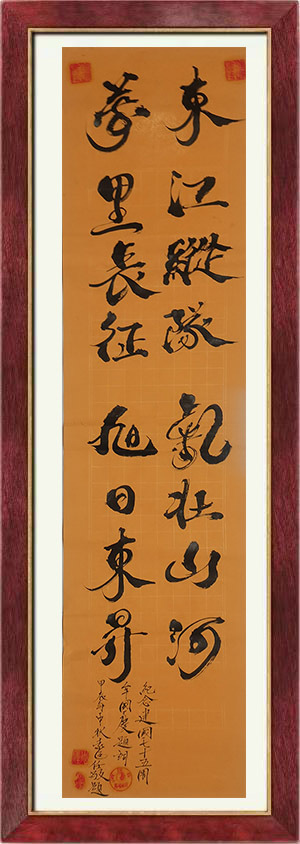 東江縱隊 氣壯山河
夢里長征 旭日東昇
紀念建國七十五周
年國慶題詞
甲辰年中秋 敬題